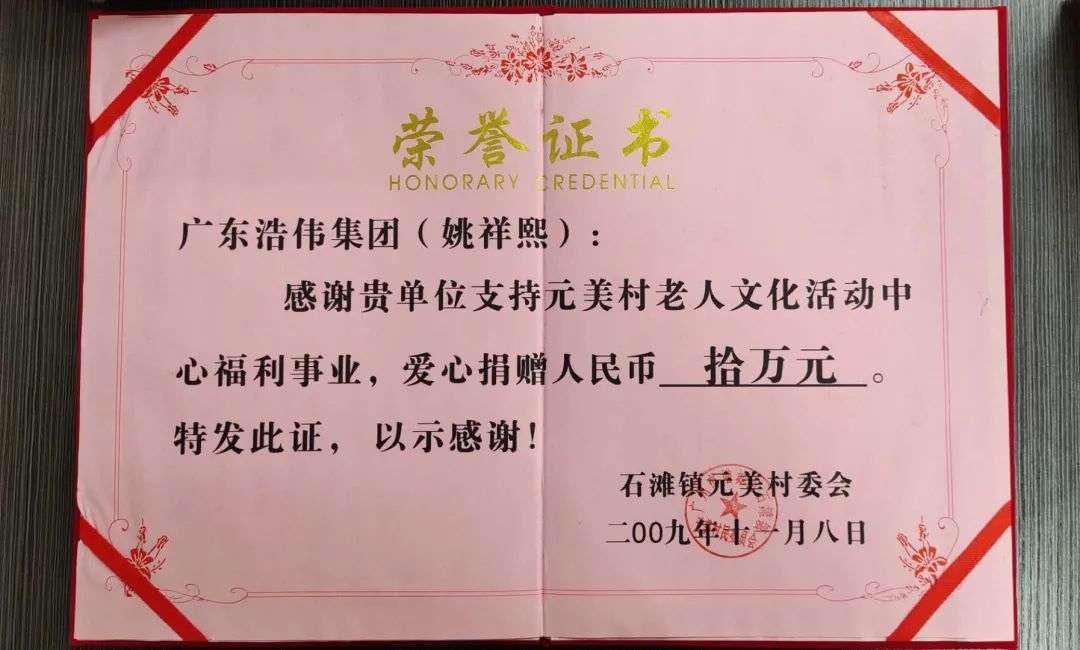 荣誉证书
HONORARY CREDENTIAL
广东浩伟集团（姚祥熙）：
感谢贵单位支持元美村老人文化活动中
心福利事业，爱心捐赠人民币 拾万元 。
特发此证，以示感谢！
石滩镇元美村委会
二00九年十一月八日